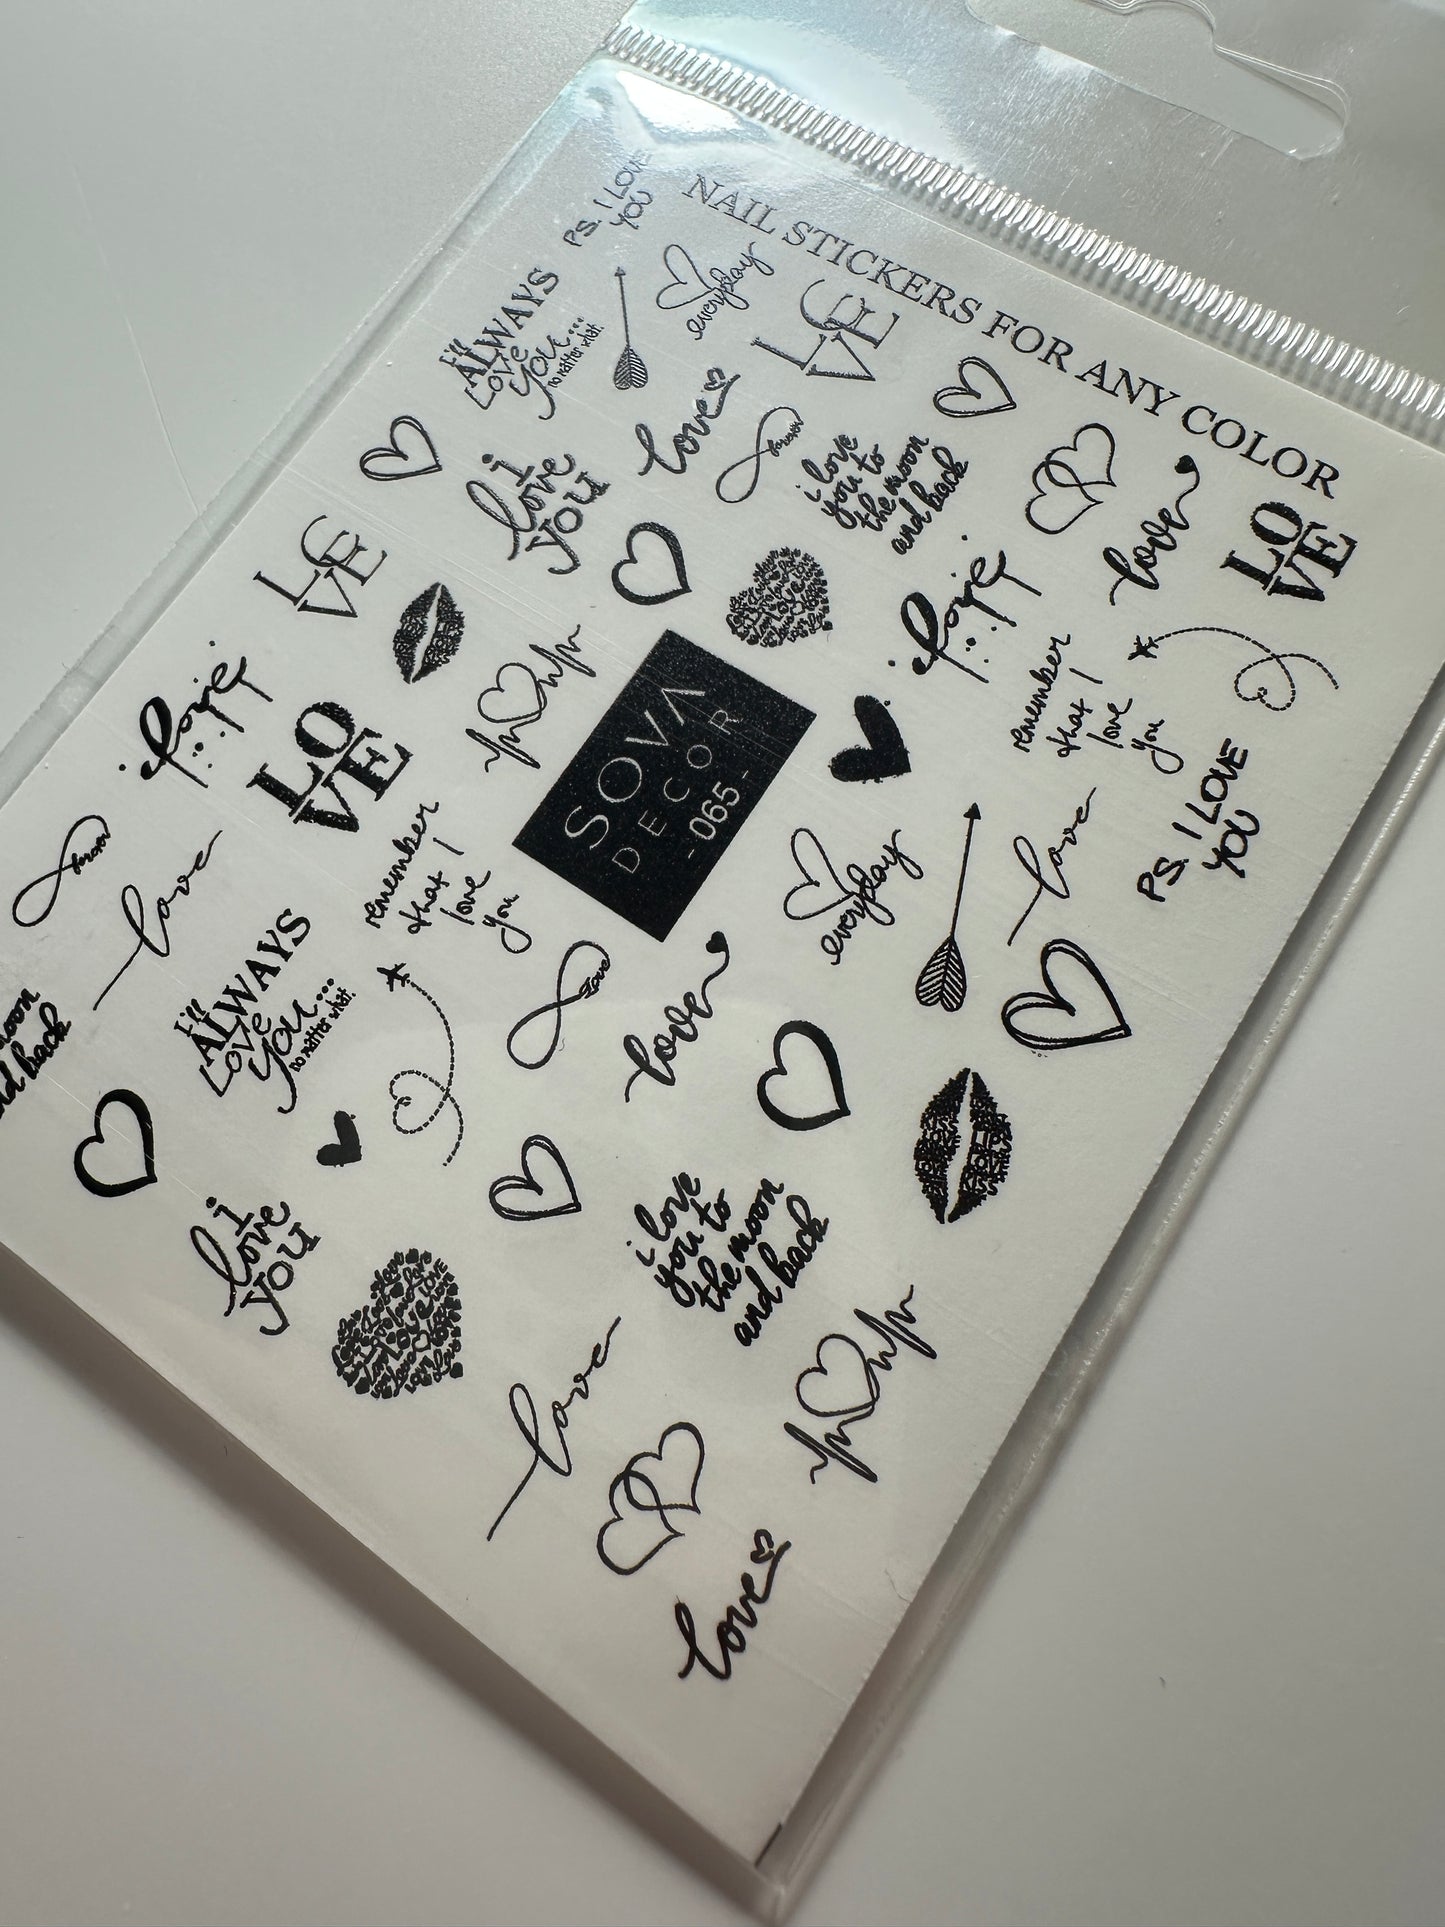 NAIL STICKERS FOR ANY COLOR
PS. I LOVE
YOU
everyday
LO
VE
I'll
ALWAYS
Love
you...
no matter what.
love
i
love
you
forever
i love
you to
the moon
and back
love
LO
VE
LO
VE
remember
that I
love
you
SOVA
DECOR
-065-
PS. I LOVE
YOU
love
everyday
LO
VE
remember
that I
love
you
forever
love
I'll
ALWAYS
Love
you...
no matter what.
love
love
moon
and back
i
love
you
i love
you to
the moon
and back
love
love